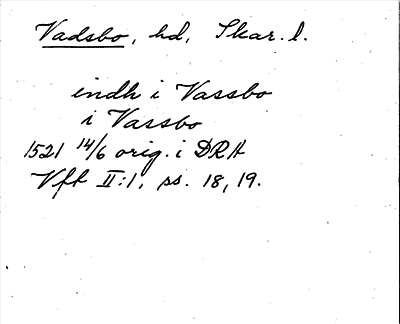 Vadsbo, hd, Skar. l.
indh i Vassbo
i Vassbo
1521 14/6 orig. i DRA
Vft II:1, ss. 18, 19.